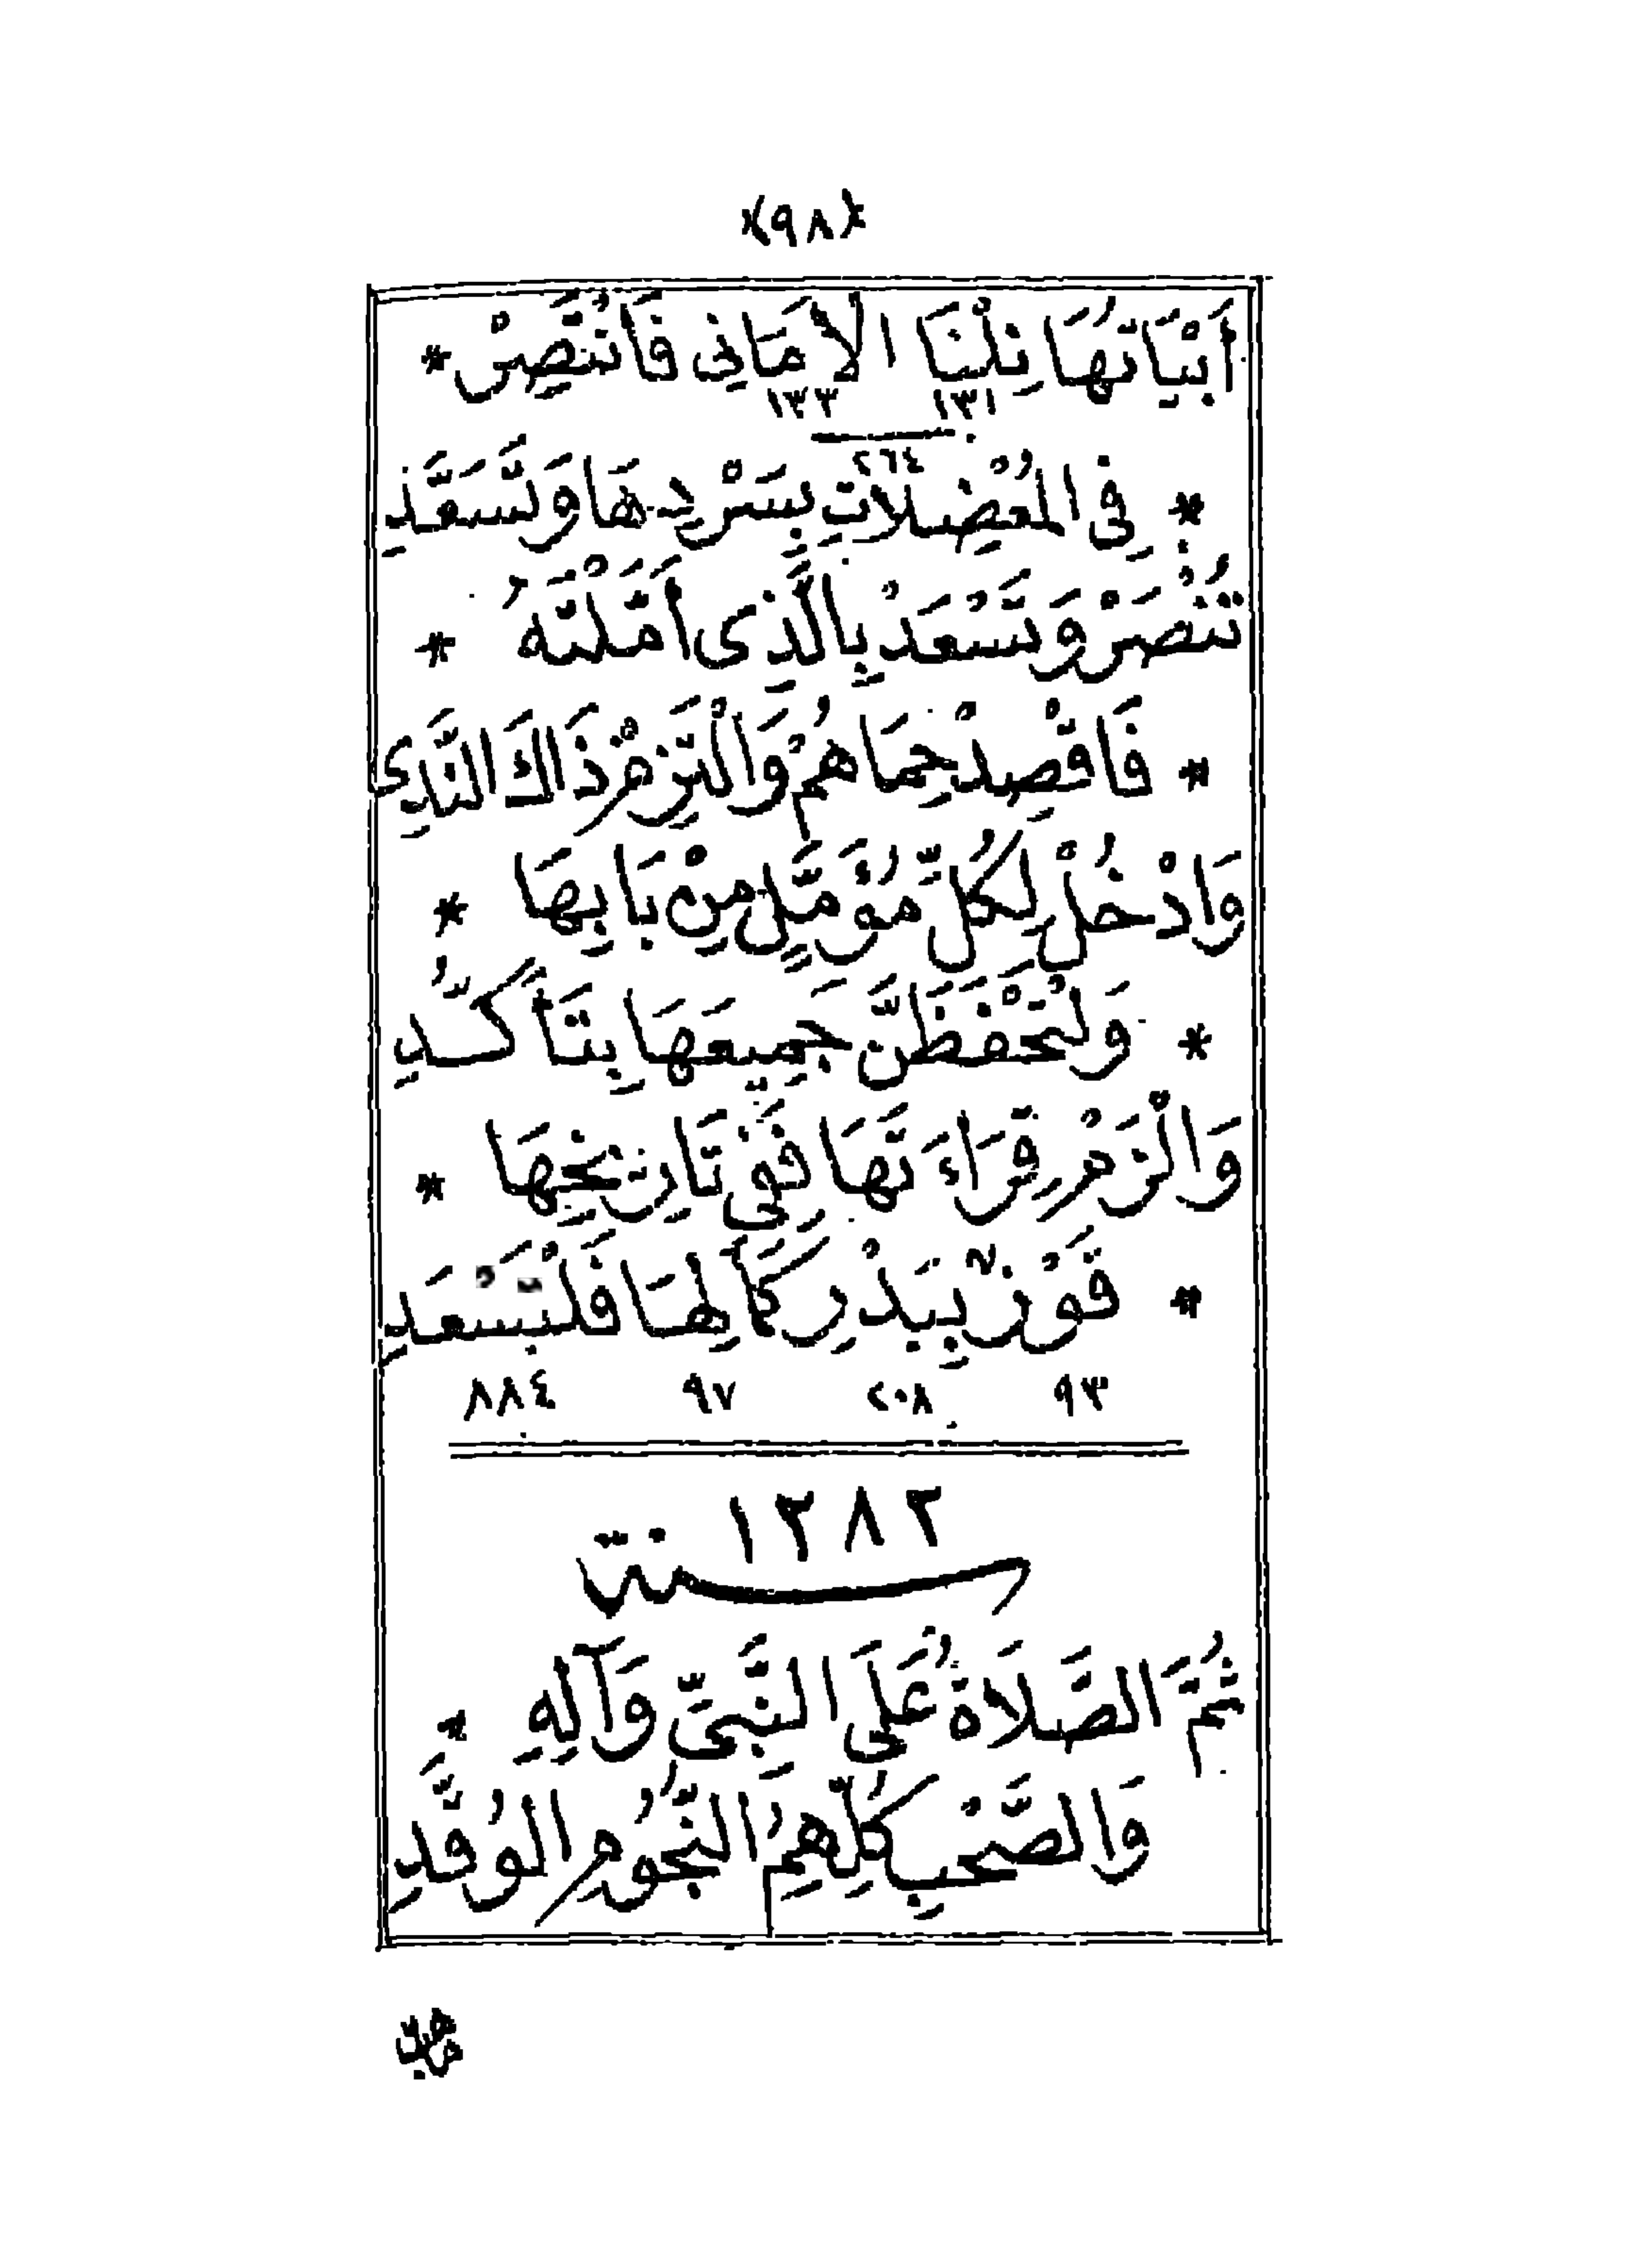 ﴿٩٨﴾
أَبْيَاتُهَا نِلْنَا الْأَمَانِي فَانْتَصِرْ *
١٣١ ١٣٣
٢٦٤
* فِي الْمُعْضِلَاتِ بِسَرْدِهَا وَتَسَعَّدِ
تُنْصَرْ وَتَسْعَدْ بِالَّذِى أَمَّلْتَهُ *
* فَاقْصِدْ حِمَاهُمْ وَالْتَزِمْ ذَاكَ النَّدِي
وَادْخُلْ لِكُلِّ مُؤَمَّلٍ مِنْ بَابِهَا *
* وَلْتَحْفَظَنَّ جَمِيعَهَا بِتَأَكُّدِ
وَالْزَمْ قِرَاءَتَهَا فَفِي تَارِيخِهَا *
* فَوْزٌ بِبَدْرِ كَمَالِهَا فَلْتَسْعَدِ
٩٣ ٢٠٨ ٩٧ ٨٨٤
١٢٨٢
سنة
ثُمَّ الصَّلَاةُ عَلَى النَّبِيِّ وَآلِهِ *
وَالصَّحْبِ كُلِّهِمُ النُّجُومِ الْوُقَّدِ